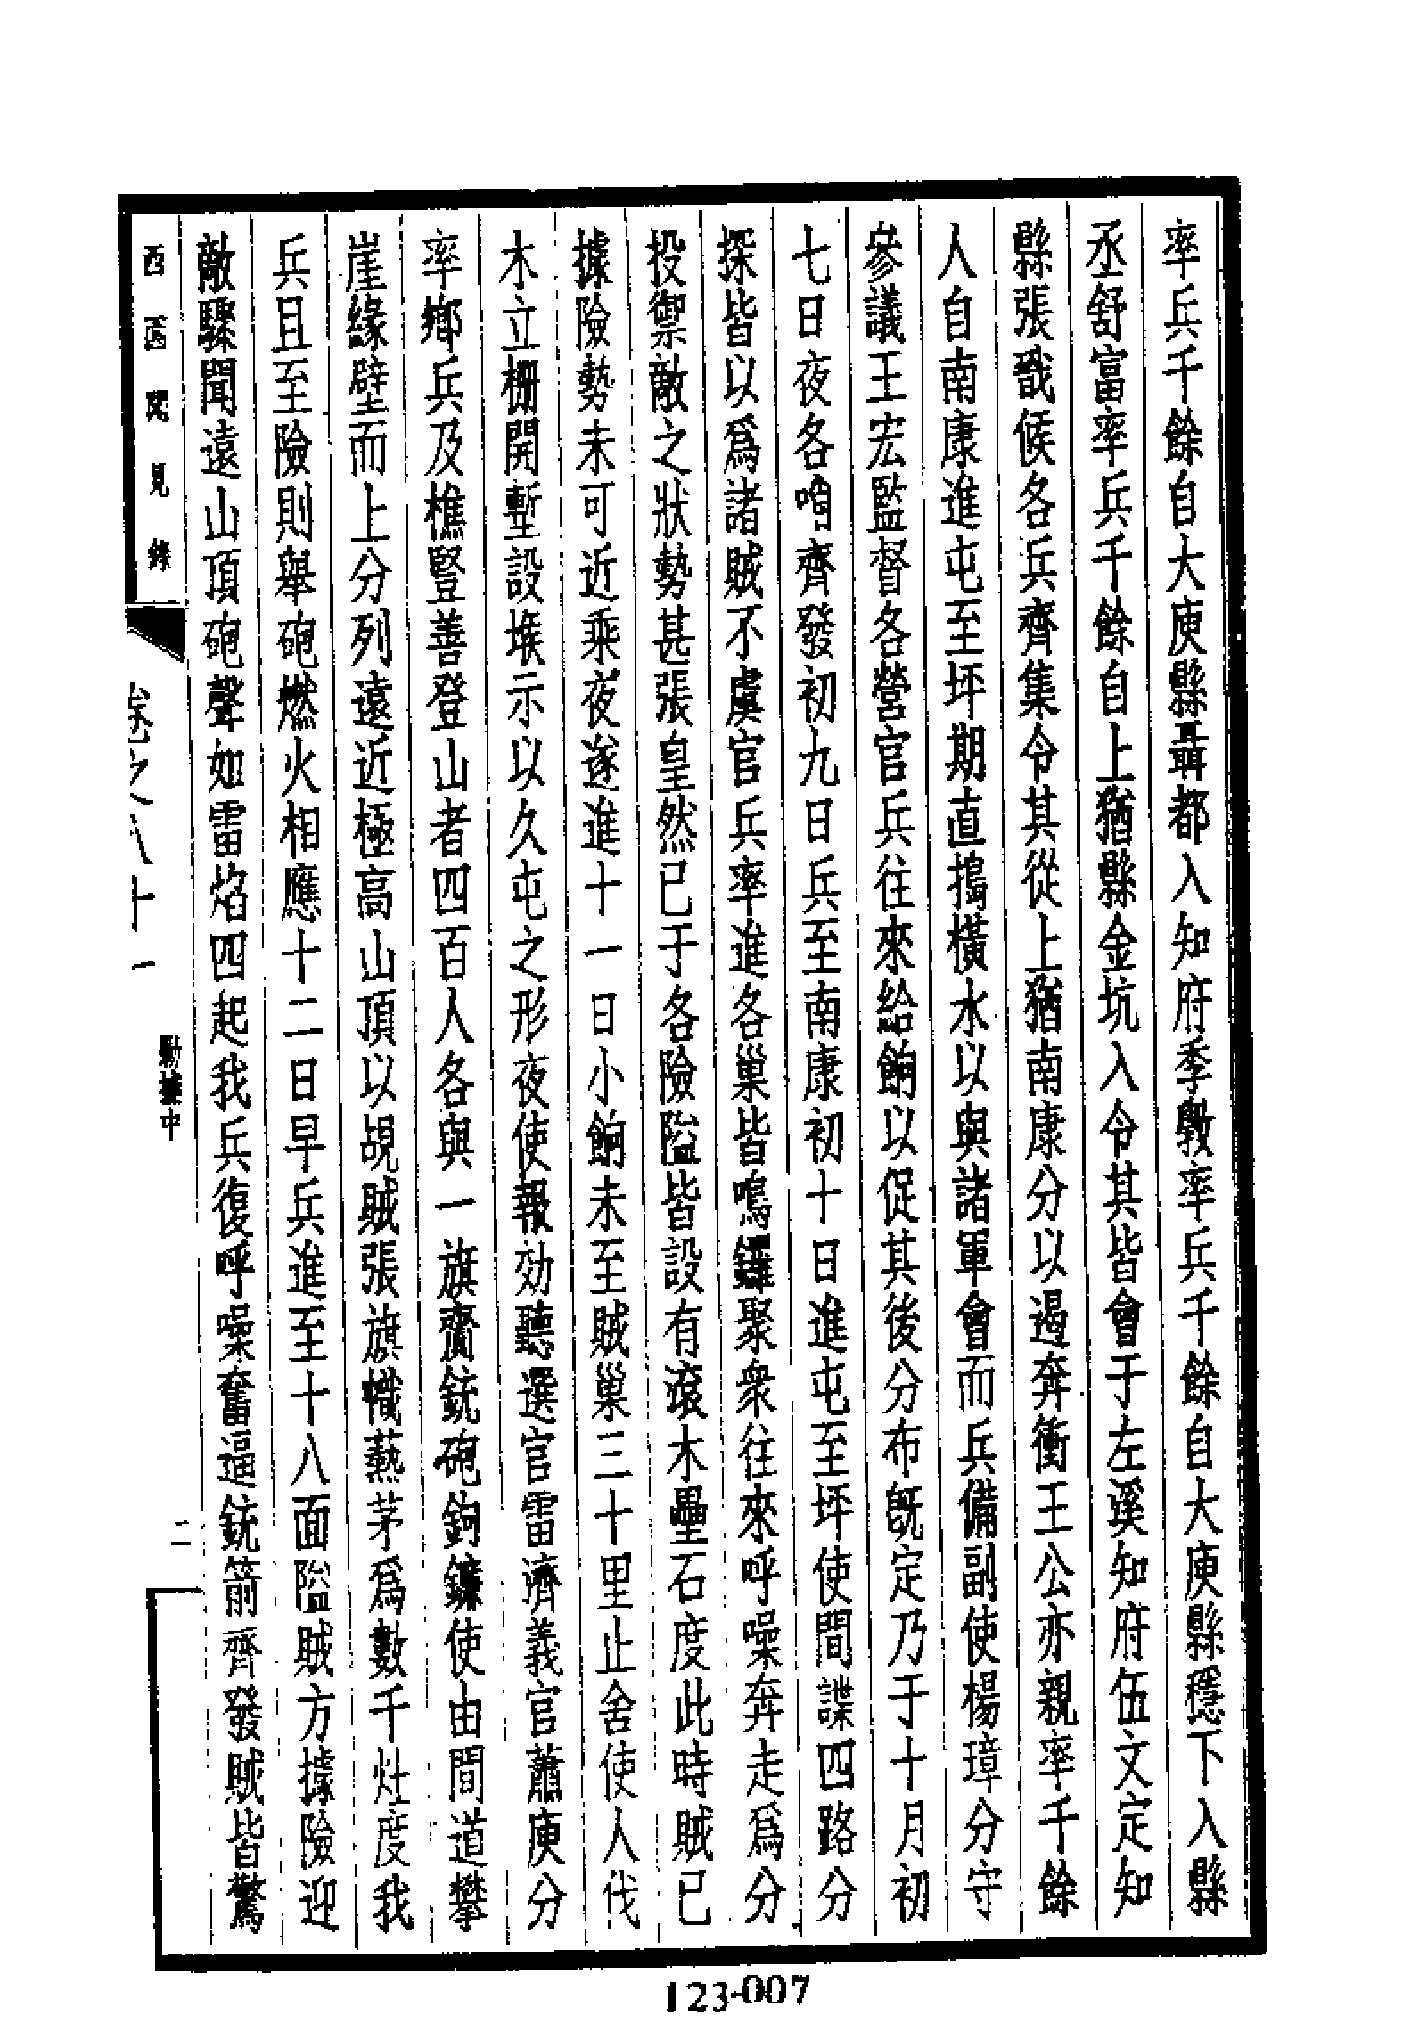 率兵千餘自大庾縣聶都入知府季斆率兵千餘自大庾縣穩下入縣
丞舒富率兵千餘自上猶縣金坑入令其皆會于左溪知府伍文定知
縣張戩候各兵齊集令其從上猶南康分以遏奔衝王公亦親率千餘
人自南康進屯至坪期直搗橫水以與諸軍會而兵備副使楊璋分守
參議王宏監督各營官兵往來給餉以促其後分布既定乃于十月初
七日夜各哨齊發初九日兵至南康初十日進屯至坪使間諜四路分
探皆以爲諸賊不虞官兵率進各巢皆鳴鑼聚衆往來呼噪奔走爲分
投禦敵之狀勢甚張皇然已于各險隘皆設有滾木壘石度此時賊已
據險勢未可近乘夜遂進十一日小餉未至賊巢三十里止舍使人伐
木立柵開塹設堠示以久屯之形夜使報効聽選官雷濟義官蕭庾分
率鄉兵及樵豎善登山者四百人各與一旗齎銃砲鉤鐮使由間道攀
崖緣壁而上分列遠近極高山頂以覘賊張旗幟爇茅爲數千灶度我
兵且至險則舉砲燃火相應十二日早兵進至十八面隘賊方據險迎
敵驟聞遠山頂砲聲如雷焰四起我兵復呼噪奮逼銃箭齊發賊皆驚
西園聞見錄
卷之八十一
勦撫中
二
123-007